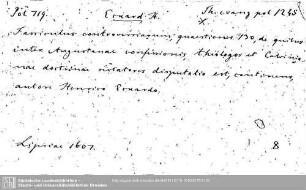 Eccard. H. Th. evang. pol 1245
Fasciculus controversiarum, quaestiones 130, de quibus
inter Augustanae confessionis theologos et Calvinia-
nae doctrinae disputatio est, continens,
autore Henrico Eccardo.
Lipsiae 1607. 8
Sächsische Landesbibliothek -
Staats- und Universitätsbibliothek Dresden